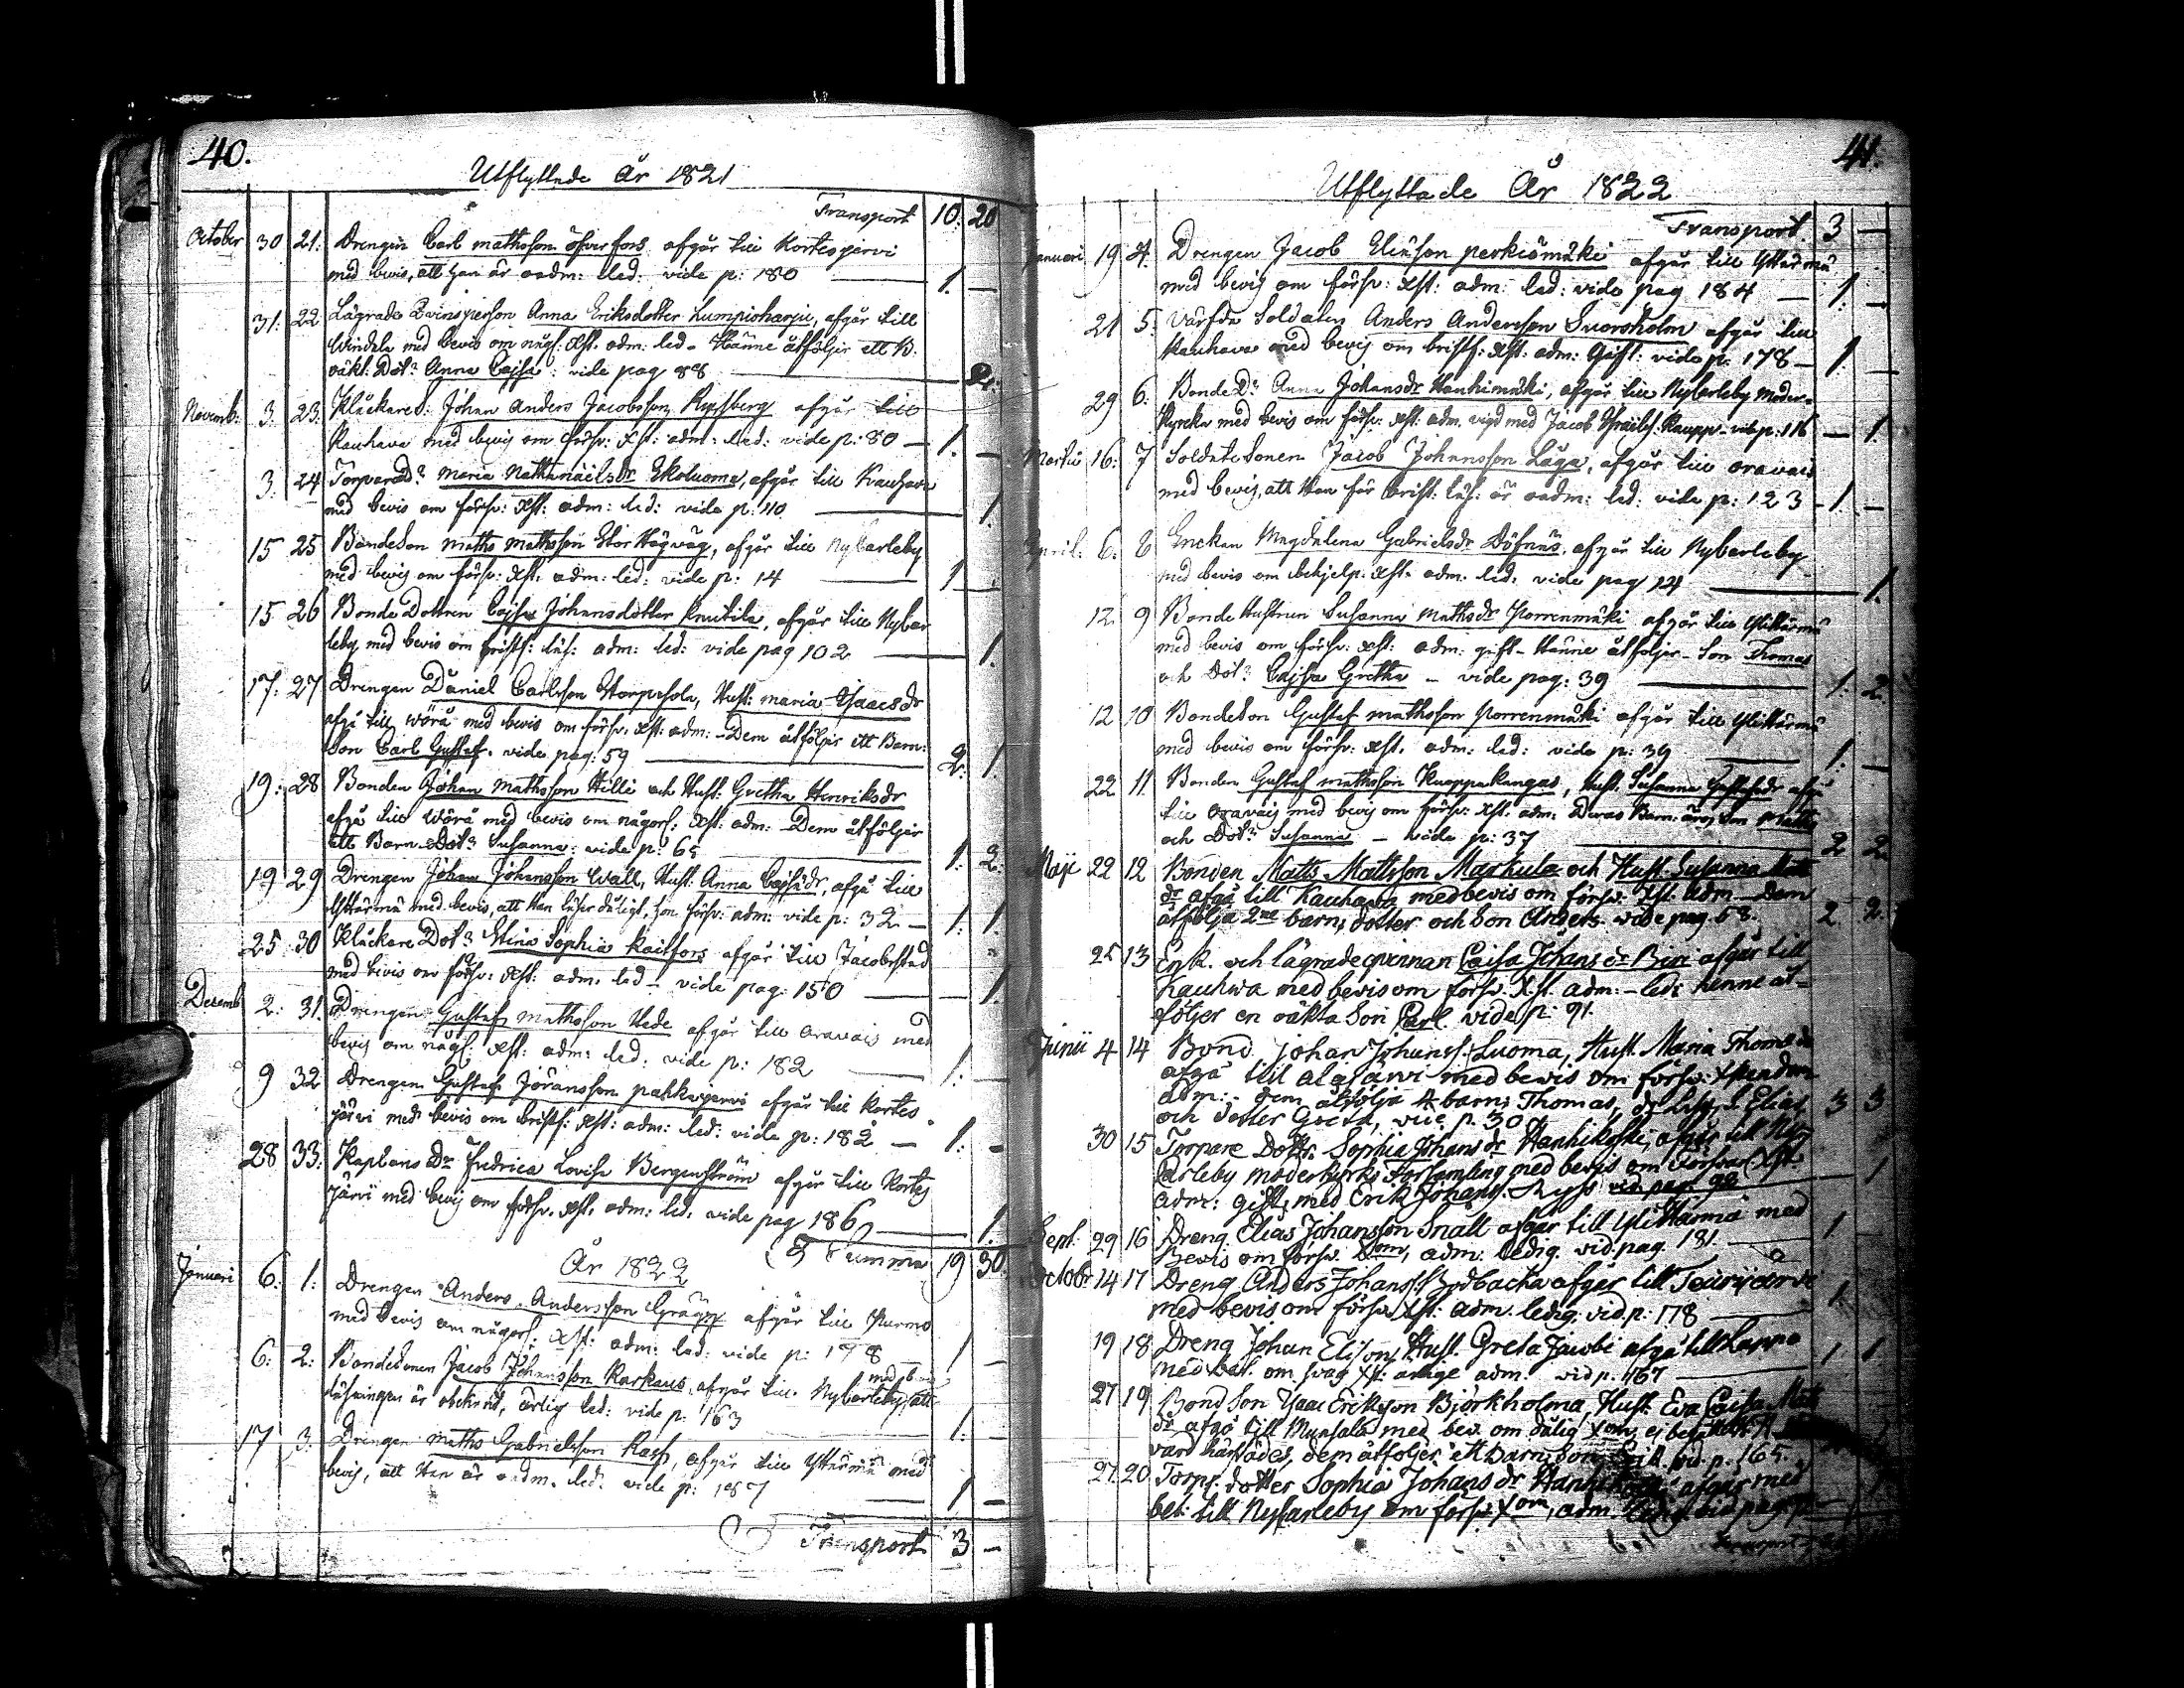 40.
Utflyttade År 1821
Transport 10. 20
October 30 21. Drengen Carl mathsson öfverfors afgår till Kortesjervi
med bevis, att han är oadm: led: vide p: 180 — 1. —
31. 22 Lägrade Qvinsperson Anna Eriksdotter Lumpioharju, afgår till
Vindala med bevis om någ: Xst. adm: led - Hänne åtföljer ett B.
oäkt: Dot: Anna Cajsa: vide pag 88 — 2.
Novemb: 3. 23. Klåckare S: Johan Anders Jacobsson afgår till
Kauhava med bevis om försv: Xst: adm: led: vide p: 80 — 1. —
3. 24 Torpared: Maria Nathanaelsdr Ekoluoma, afgår till Kauhava
med bevis om försv: Xst: adm: led: vide p: 110 — 1.
15 25 Bondeson Maths mathsson Stor Högväg, afgår till Nybarleby
med bevis om försv: Xst: adm: led: vide p: 14 — 1. —
15 26 Bonde Dottren Cajsa Johansdotter Knutila, afgår till Nybar
leby med bevis om bristf: läs: adm: led: vide pag 102 — 1.
17: 27 Drengen Daniel Carlsson Storpesola, Hust: maria Isaacsdr
afgå till wörå med bevis om försv. Xst: adm: - Dem åtföljer ett Barn:
Son Carl Gustaf. vide pag: 59 — 2. 1.
19: 28 Bonden Johan mathsson Hilli och Hust: Gretha Henriksdr
afgå till Wörå med bevis om någorl: Xst: adm: - Dem åtföljer
ett Barn Dot: Susanna: vide p: 65 — 1. 2.
19 29 Drengen Johan Johansson Wäll, Hust: Anna Cajsadr, afgå till
Ytterma med bevis, att Han läser dåligt, hon försv: adm: vide p: 32 — 1. 1.
25. 30 Klåckare Dot: Stina Sophia kaitfors afgår till Jacobstad
med bevis om försv: Xst: adm. led - vide pag: 150 — 1.
Decemb 2. 31. Drengen Gustaf mathsson Hede afgår till oravais med
bevis om någ: Xst: adm: led: vide p: 182 — 1. —
9 32 Drengen Gustaf Jöransson pakkajervi afgår till Kortes
järvi med bevis om bristf: Xst: adm: led: vide p: 182 — 1. —
28 33. Kaplans Dr Fredrica Lovisa Bergenström afgår till Kortes
järvi med bevis om försv. Xst. adm: led: vide pag 186 — 1.
Summa 19 30.
År 1822
Januari 6. 1. Drengen Anders Andersson Grägg afgår till Purmo
med bevis om någorl: Xst: adm: led: vide p: 178 1 —
6. 2. Bondesonen Jacob Johansson Karkaus, afgår till Nybarleby, med bevis att
läsningen är obekant, ärlig led: vide p: 163 1. —
17 3. Drengen maths Gabrielsson Rasf, afgår till Ytterma med
bevis, att Han är oadm. led: vide p: 187 — 1 —
Transport 3 —
41.
Utflyttade År 1822
Transport. 3 —
Januari 19 4. Drengen Jacob Eliasson perkiömäki afgår till Yttermä
med bevis om försv: Xst: adm: led: vide pag 184 — 1. —
21 5. Värfda Soldaten Anders Andersson Snorsholm afgår till
Kauhava med bevis om bristf: Xst: adm: Gift: vide p: 178 — 1 —
29 6. Bonde Dr Anna Johansdr Hanhimäki, afgår till Nybarleby Moder-
kyrcka med bevis om försv: Xst: adm. vigd med Jacob Kaupp - vide p: 116 — 1.
Martii 16: 7 Soldate Sonen Jacob Johansson Läga, afgår till oravais
med bevis, att Han för brist: läs: är oadm: led: vide p: 123 — 1 —
April: 6. 8 Enckan Magdalena Gabrielsdr Döfnäs. afgår till Nybarleby
med bevis om behjelp: Xst. adm. led. vide pag 124 — 1.
12. 9 Bonde Hustrun Susanna mathsdr Porrenmäki afgår till Ylittermä
med bevis om försv: Xst: adm: gift - Hänne åtföljer - Son Thomas
och Dot: Cajsa Gretha - vide pag: 39 — 1. 2.
12 10 Bondeson Gustaf mathsson Porrenmäki afgår till Ylittermä
med bevis om försv: Xst. adm: led: vide p: 39 — 1. —
22 11. Bonden Gustaf mathsson Kuoppakangas, Hust. Susanna Gustafsdr afgå
till oravais med bevis om försv: Xst: adm: Deras Barn: äro Son Matts
och Dot: Susanna - vide p: 37 — 2 2.
Maji 22 12 Bonden Matts Mattsson Markula och Hust. Susanna Matts
dr afgå till Kauhava med bevis om försv: Xst: adm - Dem
åtfölja 2ne barn; dotter och Son Anders. vide pag. 58. 2. 2.
25 13 Enk. och lägrade qvinnan Caisa Johans dr afgår till
Kauhva med bevis om försv. Xst. adm: - led: henne åt-
följer en oäkta Son Carl. vide p: 91.
Junii 4 14 Bond. Johan Johanss. Luoma, Hust. Maria Thoms dr
afgå till alajärvi med bewis om försv:
adm: - dem åtfölja 4 barn; Thomas, Elias,
och dotter Greta, vide p. 30 3 3
30 15 Torpare Dottr. Sophia Johans dr Hanhikoski, afgår till Ny-
Carleby moderkyrko Församling med bevis om Försvar Xst.
adm: gift, med Erik Johanss. vid. pag. 92 — 1
Sept. 29 16 Dreng. Elias Johansson Snall afgår till Ylittärmä med
Bevis om försv. Xom, adm: ledig. vid. pag. 181. — 1
Octobr 14 17 Dreng Anders Johanss. afgår till
med bevis om försv. Xst: adm. ledig. vid. p: 178 — 1.
19 18 Dreng Johan Elison, Hust. Greta Jacobi afgå till Lappo
med bet. om svag Xst: adm: vid p. 167 — 1 1
27 19 Bond Son Isaac Eriksson Björkholma, Hust. Eva Caisa Matts
dr afgå till Munsala med bev. om dålig Xom,
dem åtföljer ett barn, Son Erik. vid. p. 165.
27. 20 Torpr. dotter Sophia Johans dr afgår med
bet. till Nykarleby om försv. Xom, adm.